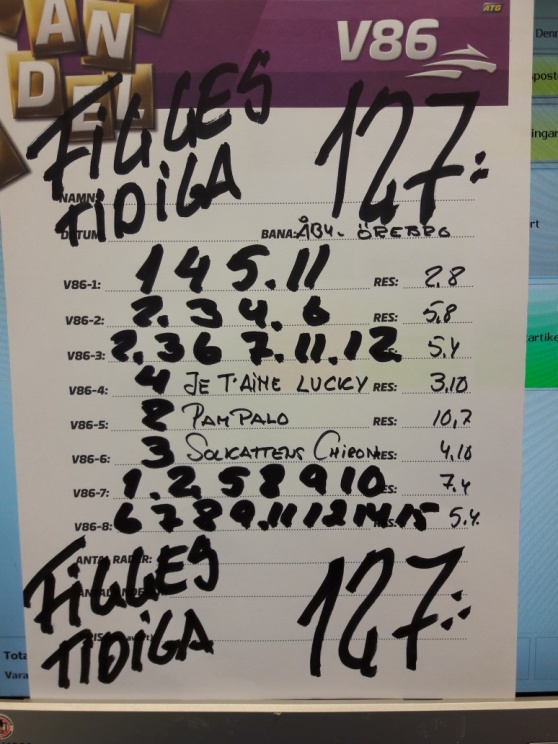 ANDEL
ATG
V86
FIGGES
TIDIGA
127:-
NAMN:
DATUM:
BANA: ÅBY- ÖREBRO
V86-1: 1 4 5.11 RES: 2,8
V86-2: 2. 3 4. 6 RES: 5,8
V86-3: 2.36 7.11.12 5,4
V86-4: 4 JE T'AIME LUCKY RES: 3,10
V86-5: 2 PAMPALO RES: 10,7
V86-6: 3 SOLKATTENS CHIRON RES: 4,10
V86-7: 1.2 5 8 9 10 7,4
V86-8: 6 7 8 9.11 12 14 15 5,4
ANTAL RADER:
FIGGES
TIDIGA
127:-
Denn
post
ingar
rt
artike
Tota
Vara